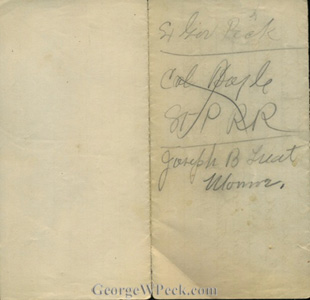 Ex Gov Peck
Col
St P RR
Joseph B Treat
Monroe.
GeorgeWPeck.com